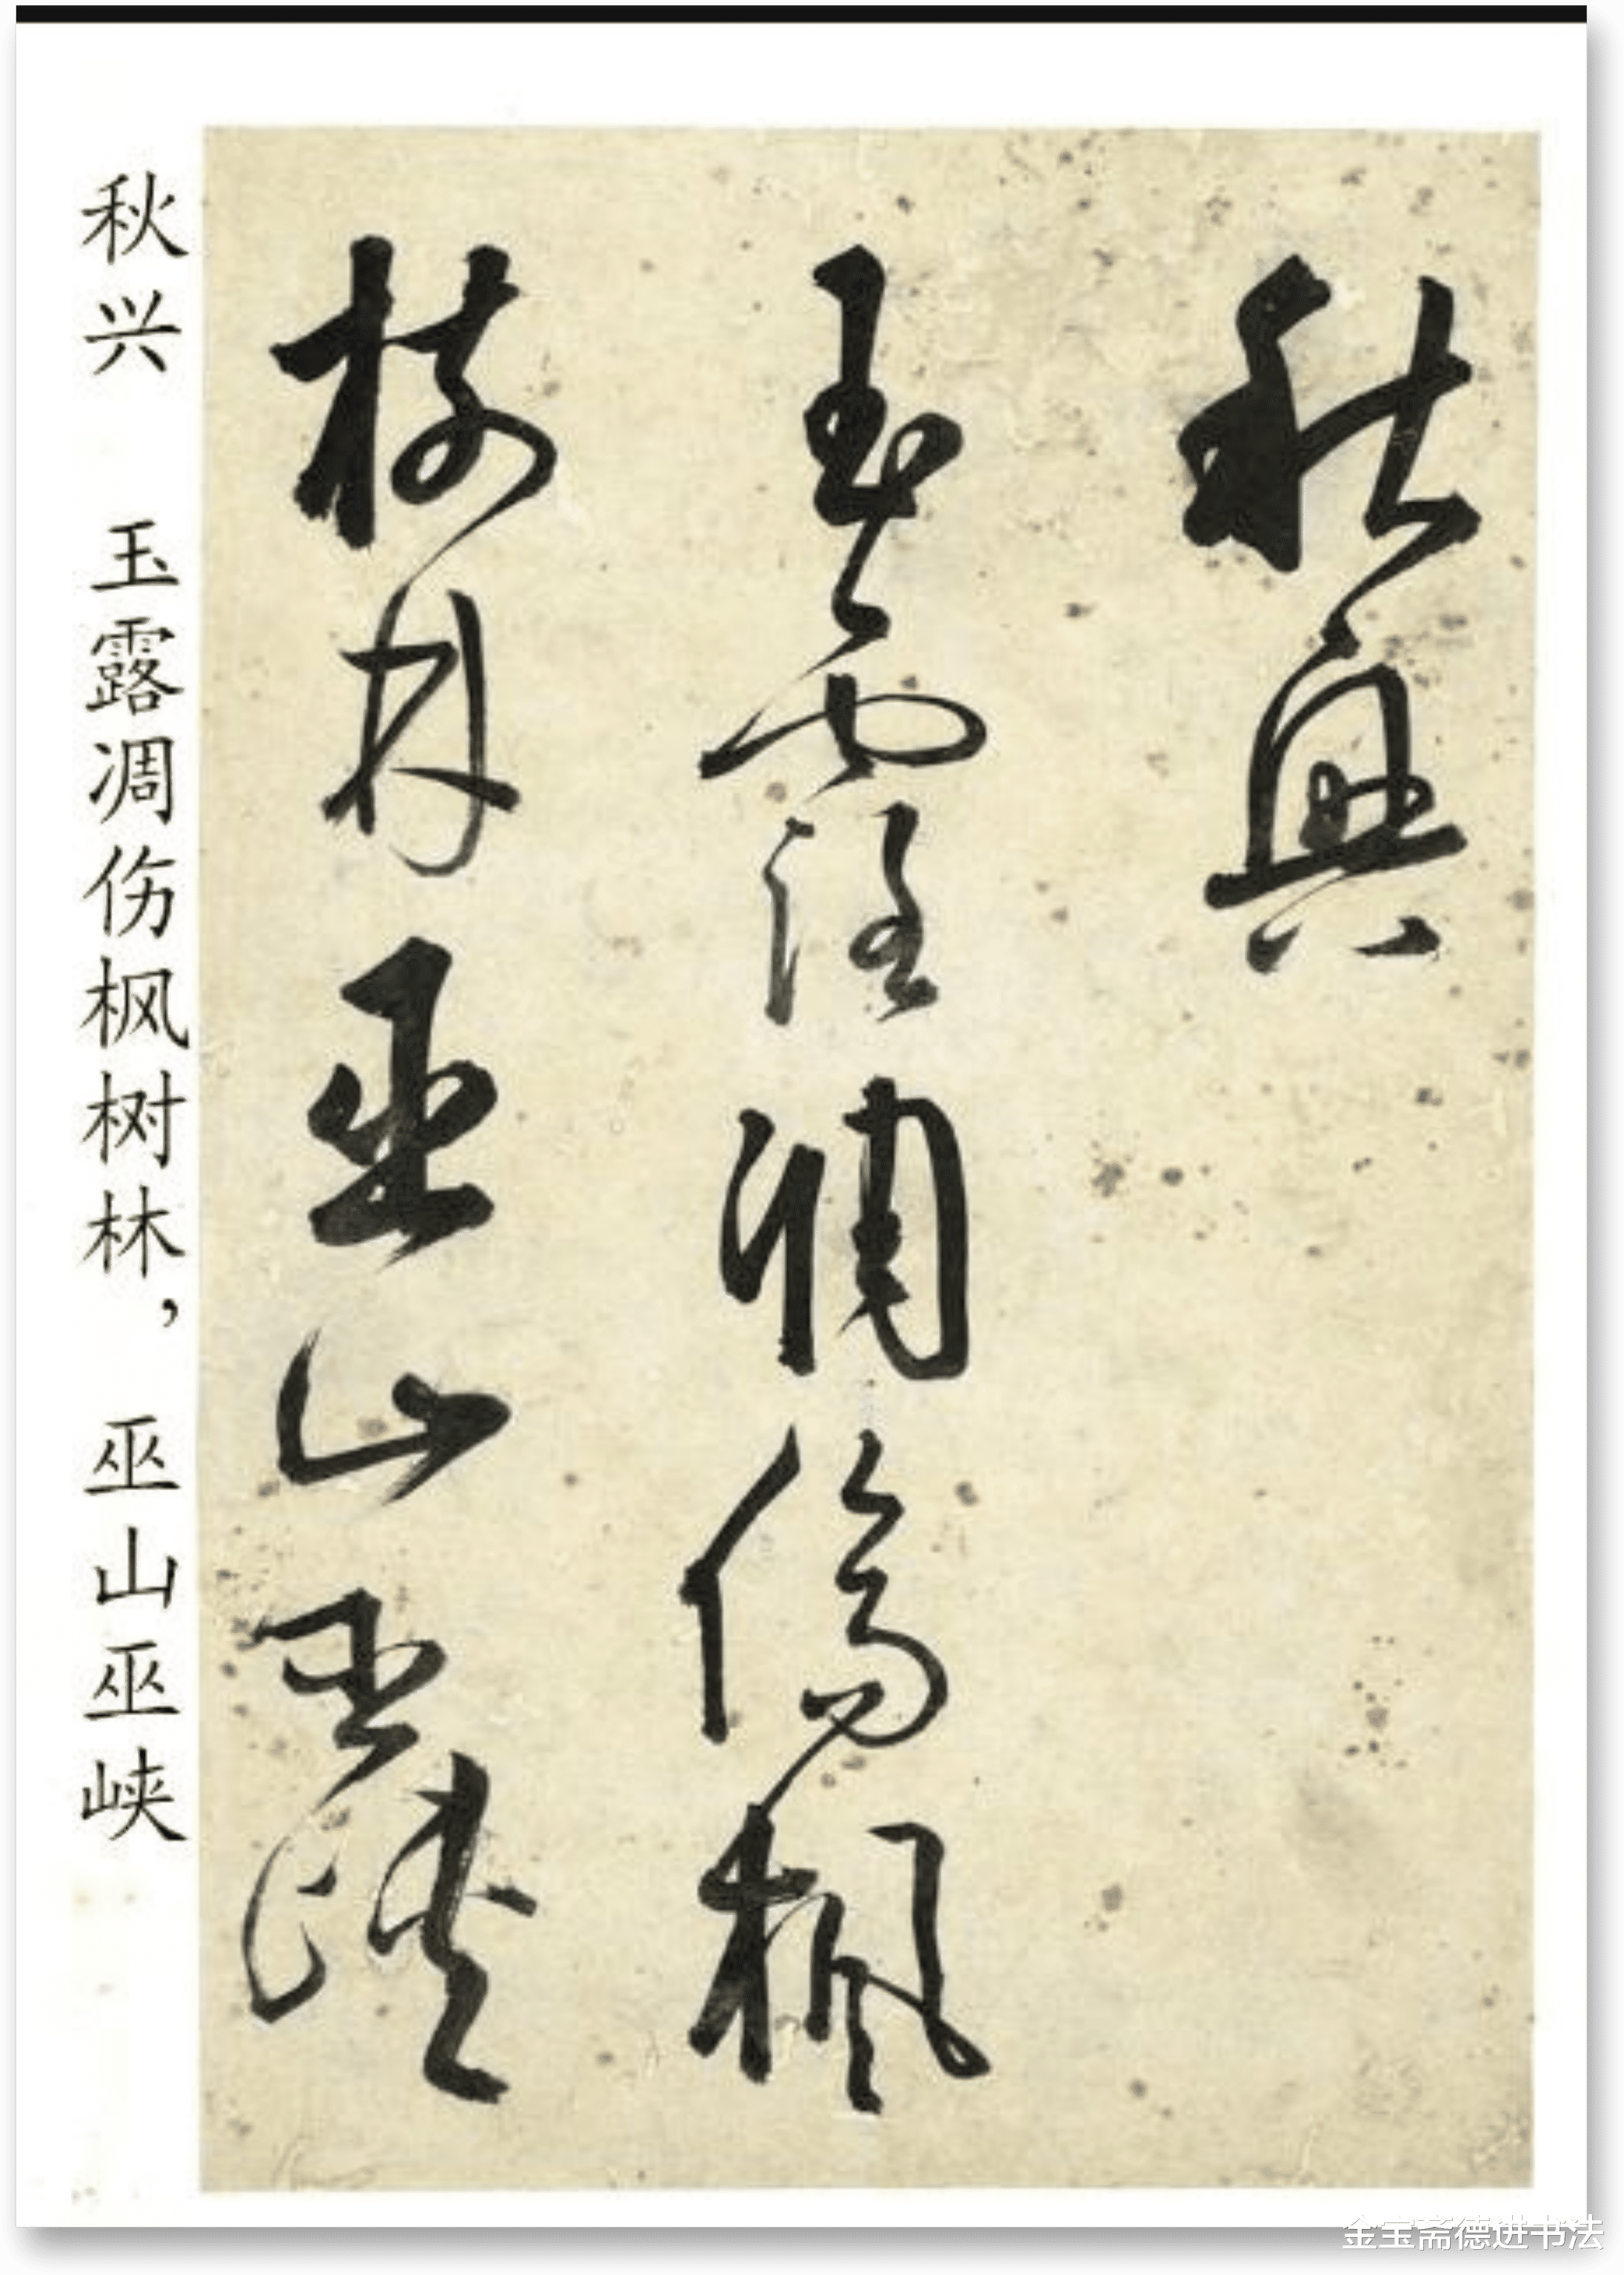 秋興
玉露凋傷楓
樹林巫山巫峽
秋兴 玉露凋伤枫树林，巫山巫峡
金宝斋德进书法